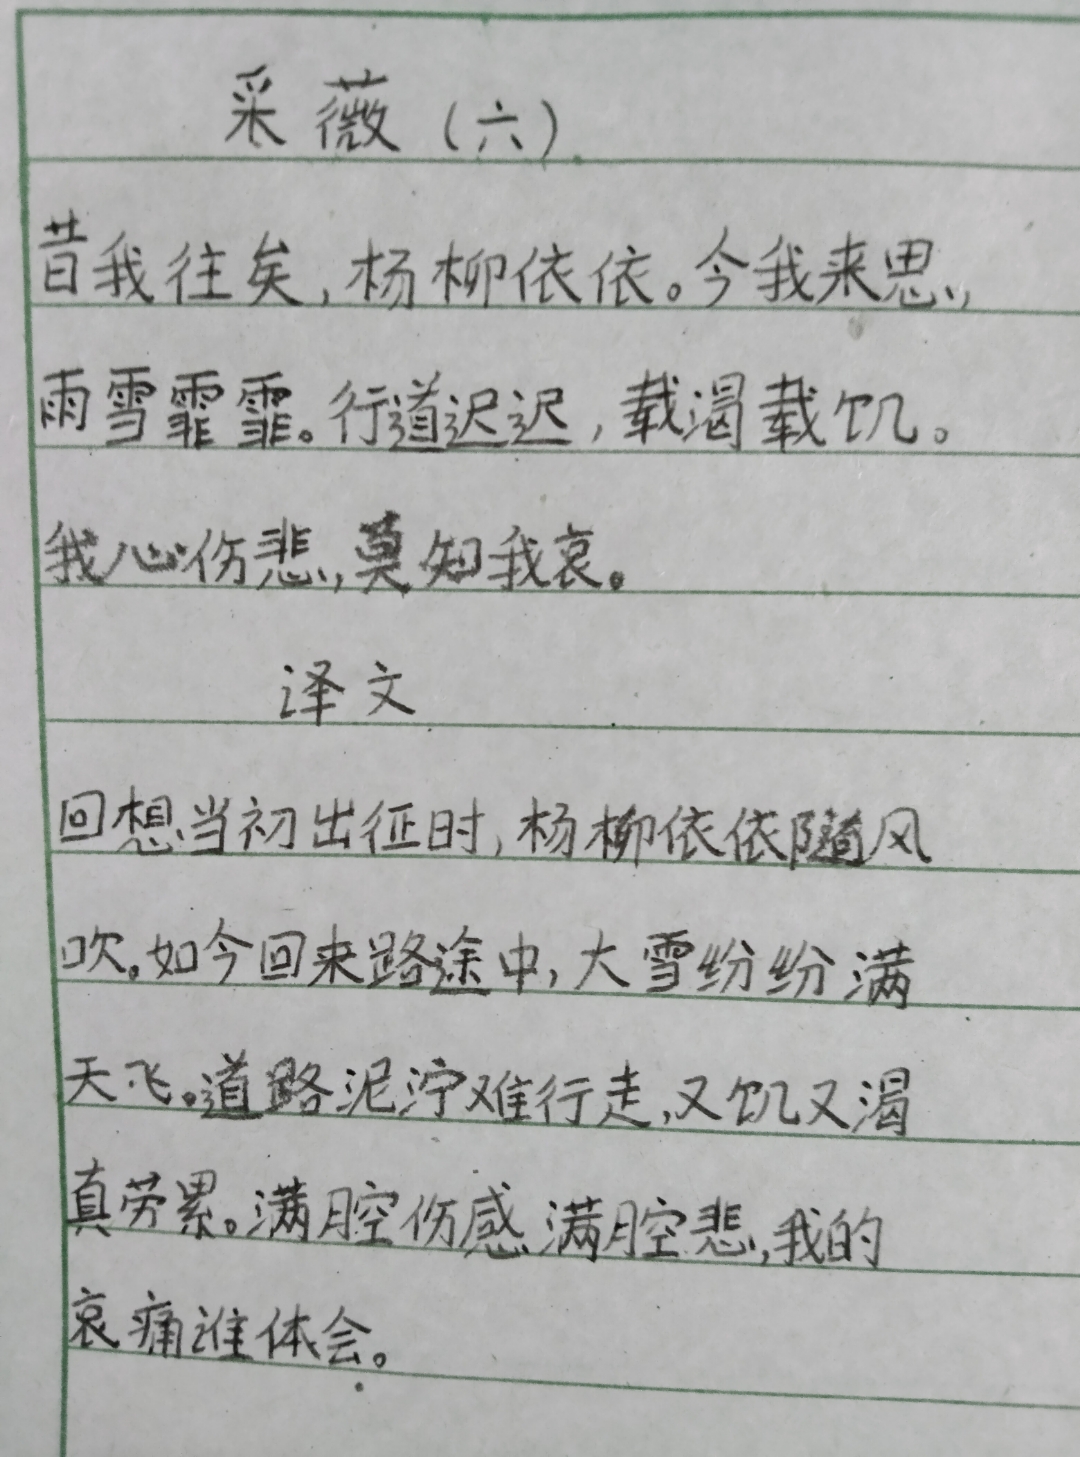 采薇(六)
昔我往矣,杨柳依依。今我来思,
雨雪霏霏。行道迟迟,载渴载饥。
我心伤悲,莫知我哀。
译文
回想当初出征时,杨柳依依随风
吹。如今回来路途中,大雪纷纷满
天飞。道路泥泞难行走,又饥又渴
真劳累。满腔伤感满腔悲,我的
哀痛谁体会。